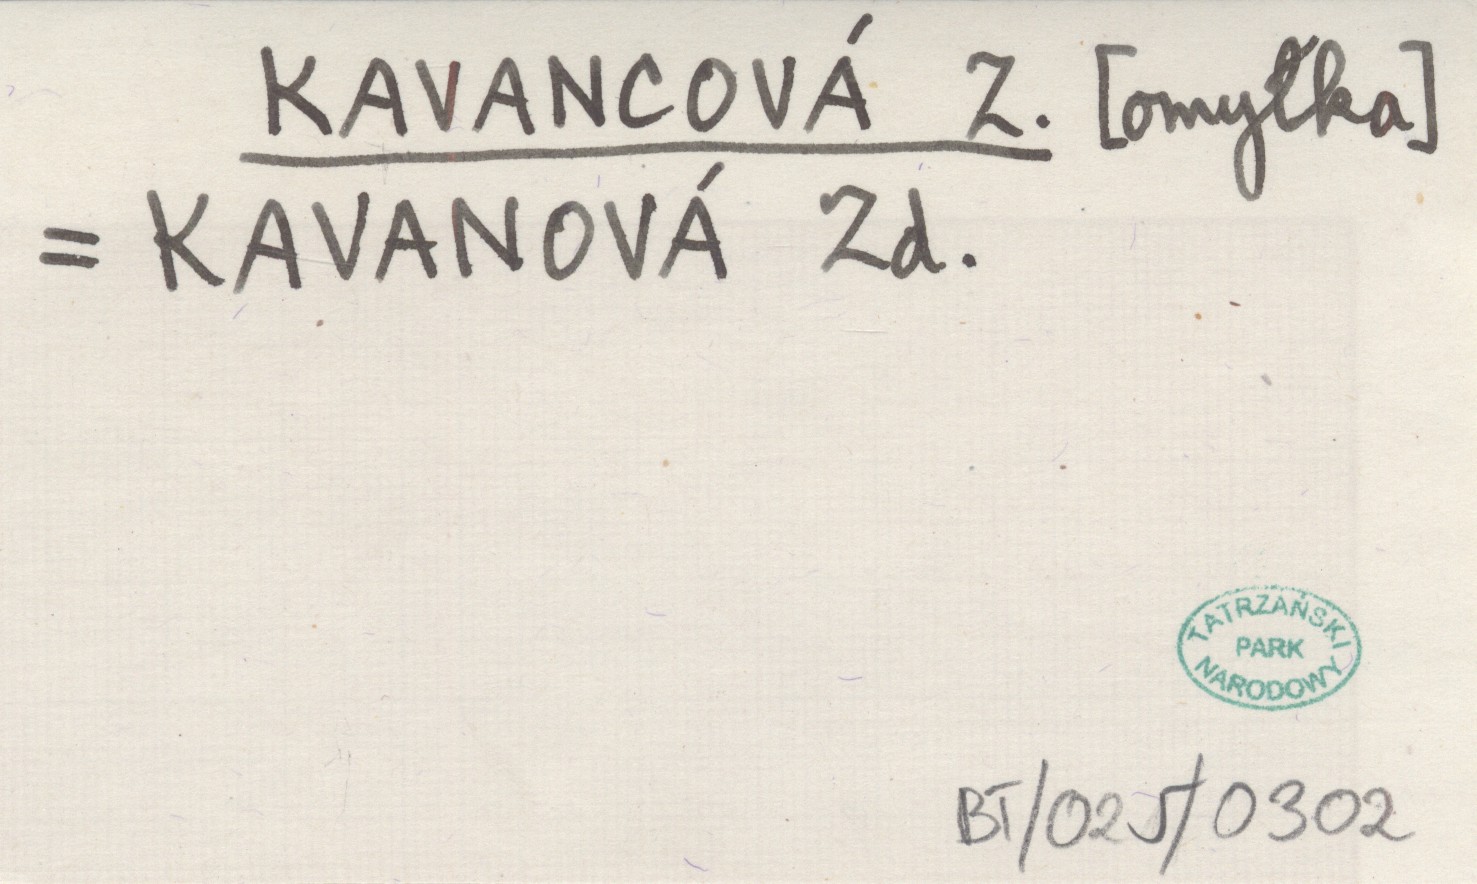 KAVANCOVÁ Z. [omyłka]
= KAVANOVÁ Zd.
TATRZAŃSKI
PARK
NARODOWY
BT/025/0302